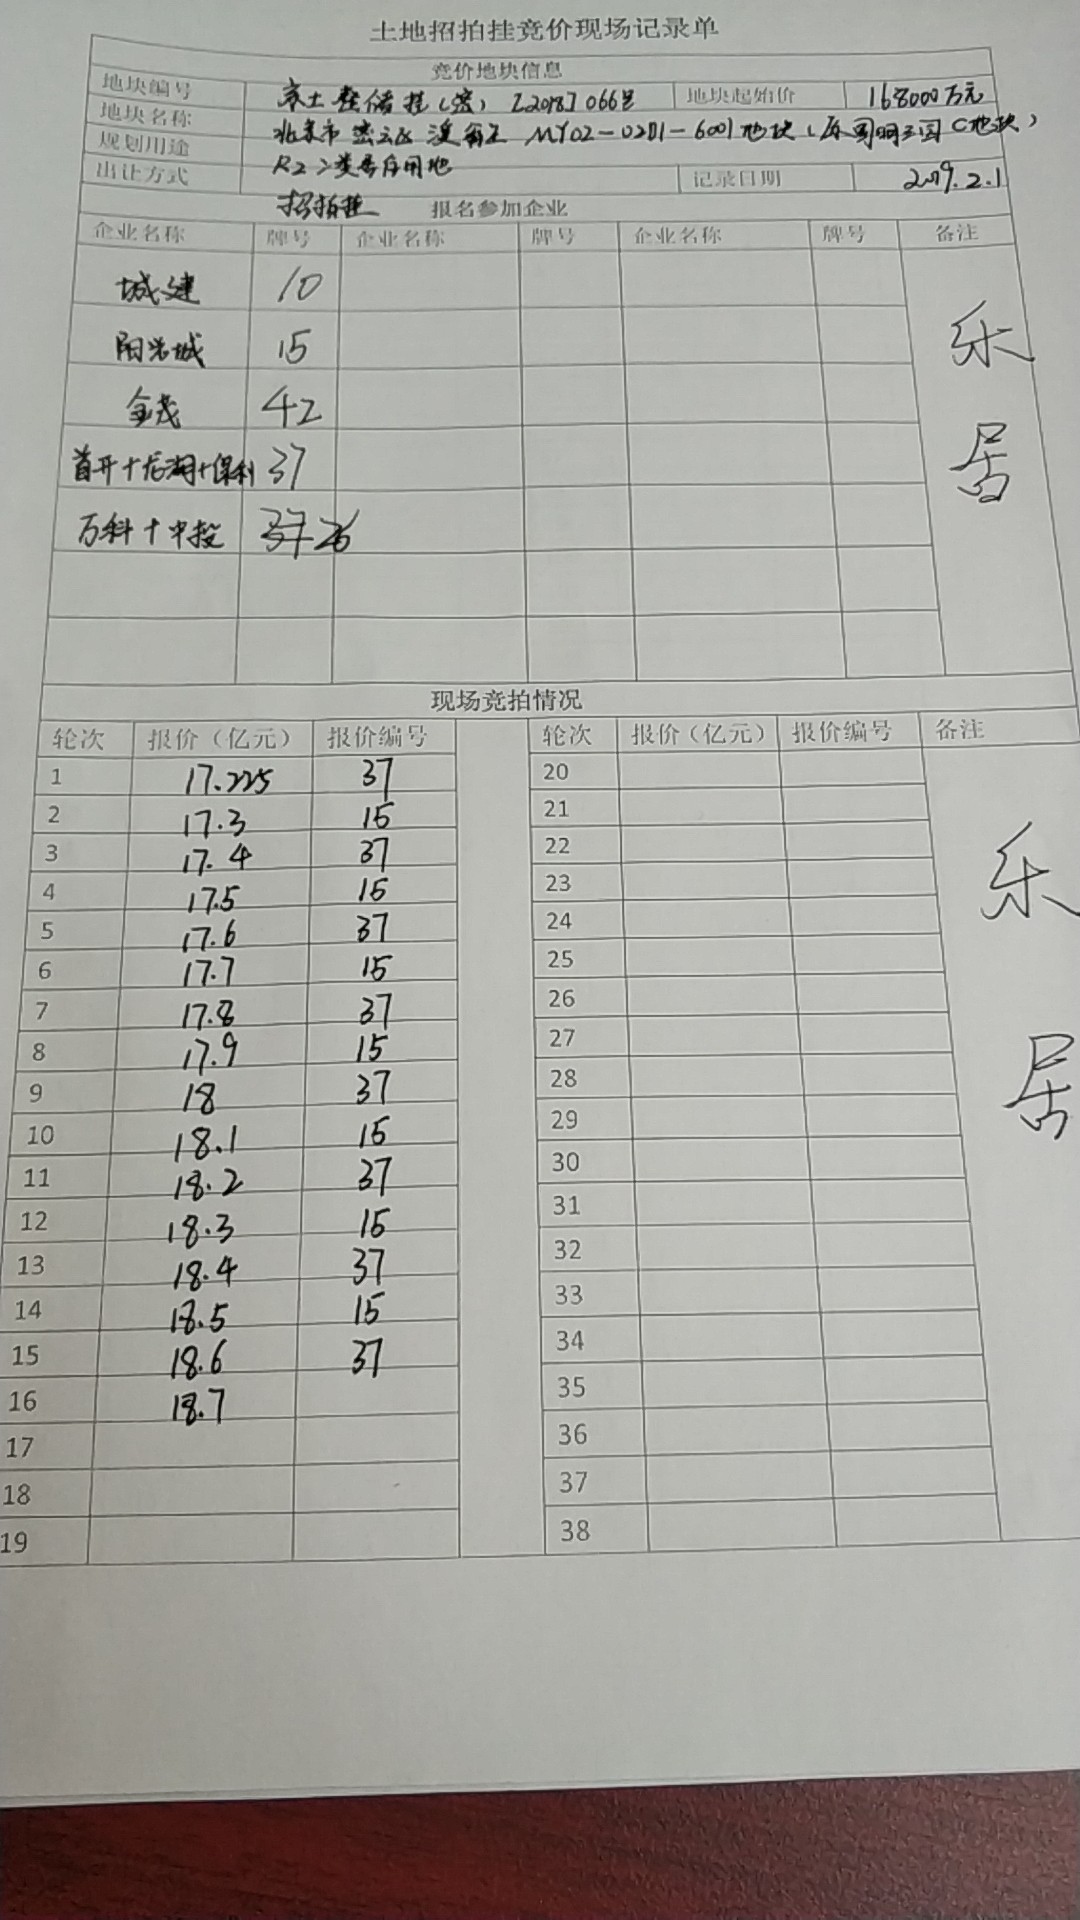 土地招拍挂竞价现场记录单
竞价地块信息
地块编号 京土整储挂(密)[2018]066号 地块起始价 168000万元
地块名称 北京市密云区溪翁庄MY02-0201-6001地块(原圆明三园C地块)
规划用途 R2二类居住用地
出让方式 招拍挂 记录日期 2019.2.1
报名参加企业
企业名称 牌号 企业名称 牌号 企业名称 牌号 备注
城建 10
阳光城 15
金茂 42
首开+龙湖+保利 37
万科+中投 37 26
乐居
现场竞拍情况
轮次 报价(亿元) 报价编号 轮次 报价(亿元) 报价编号 备注
1 17.225 37 20
2 17.3 15 21
3 17.4 37 22
4 17.5 15 23
5 17.6 37 24
6 17.7 15 25
7 17.8 37 26
8 17.9 15 27
9 18 37 28
10 18.1 15 29
11 18.2 37 30
12 18.3 15 31
13 18.4 37 32
14 18.5 15 33
15 18.6 37 34
16 18.7 35
17 36
18 37
19 38
乐居